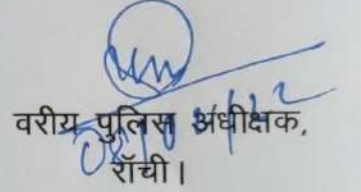 वरीय पुलिस अधीक्षक,
राँची।